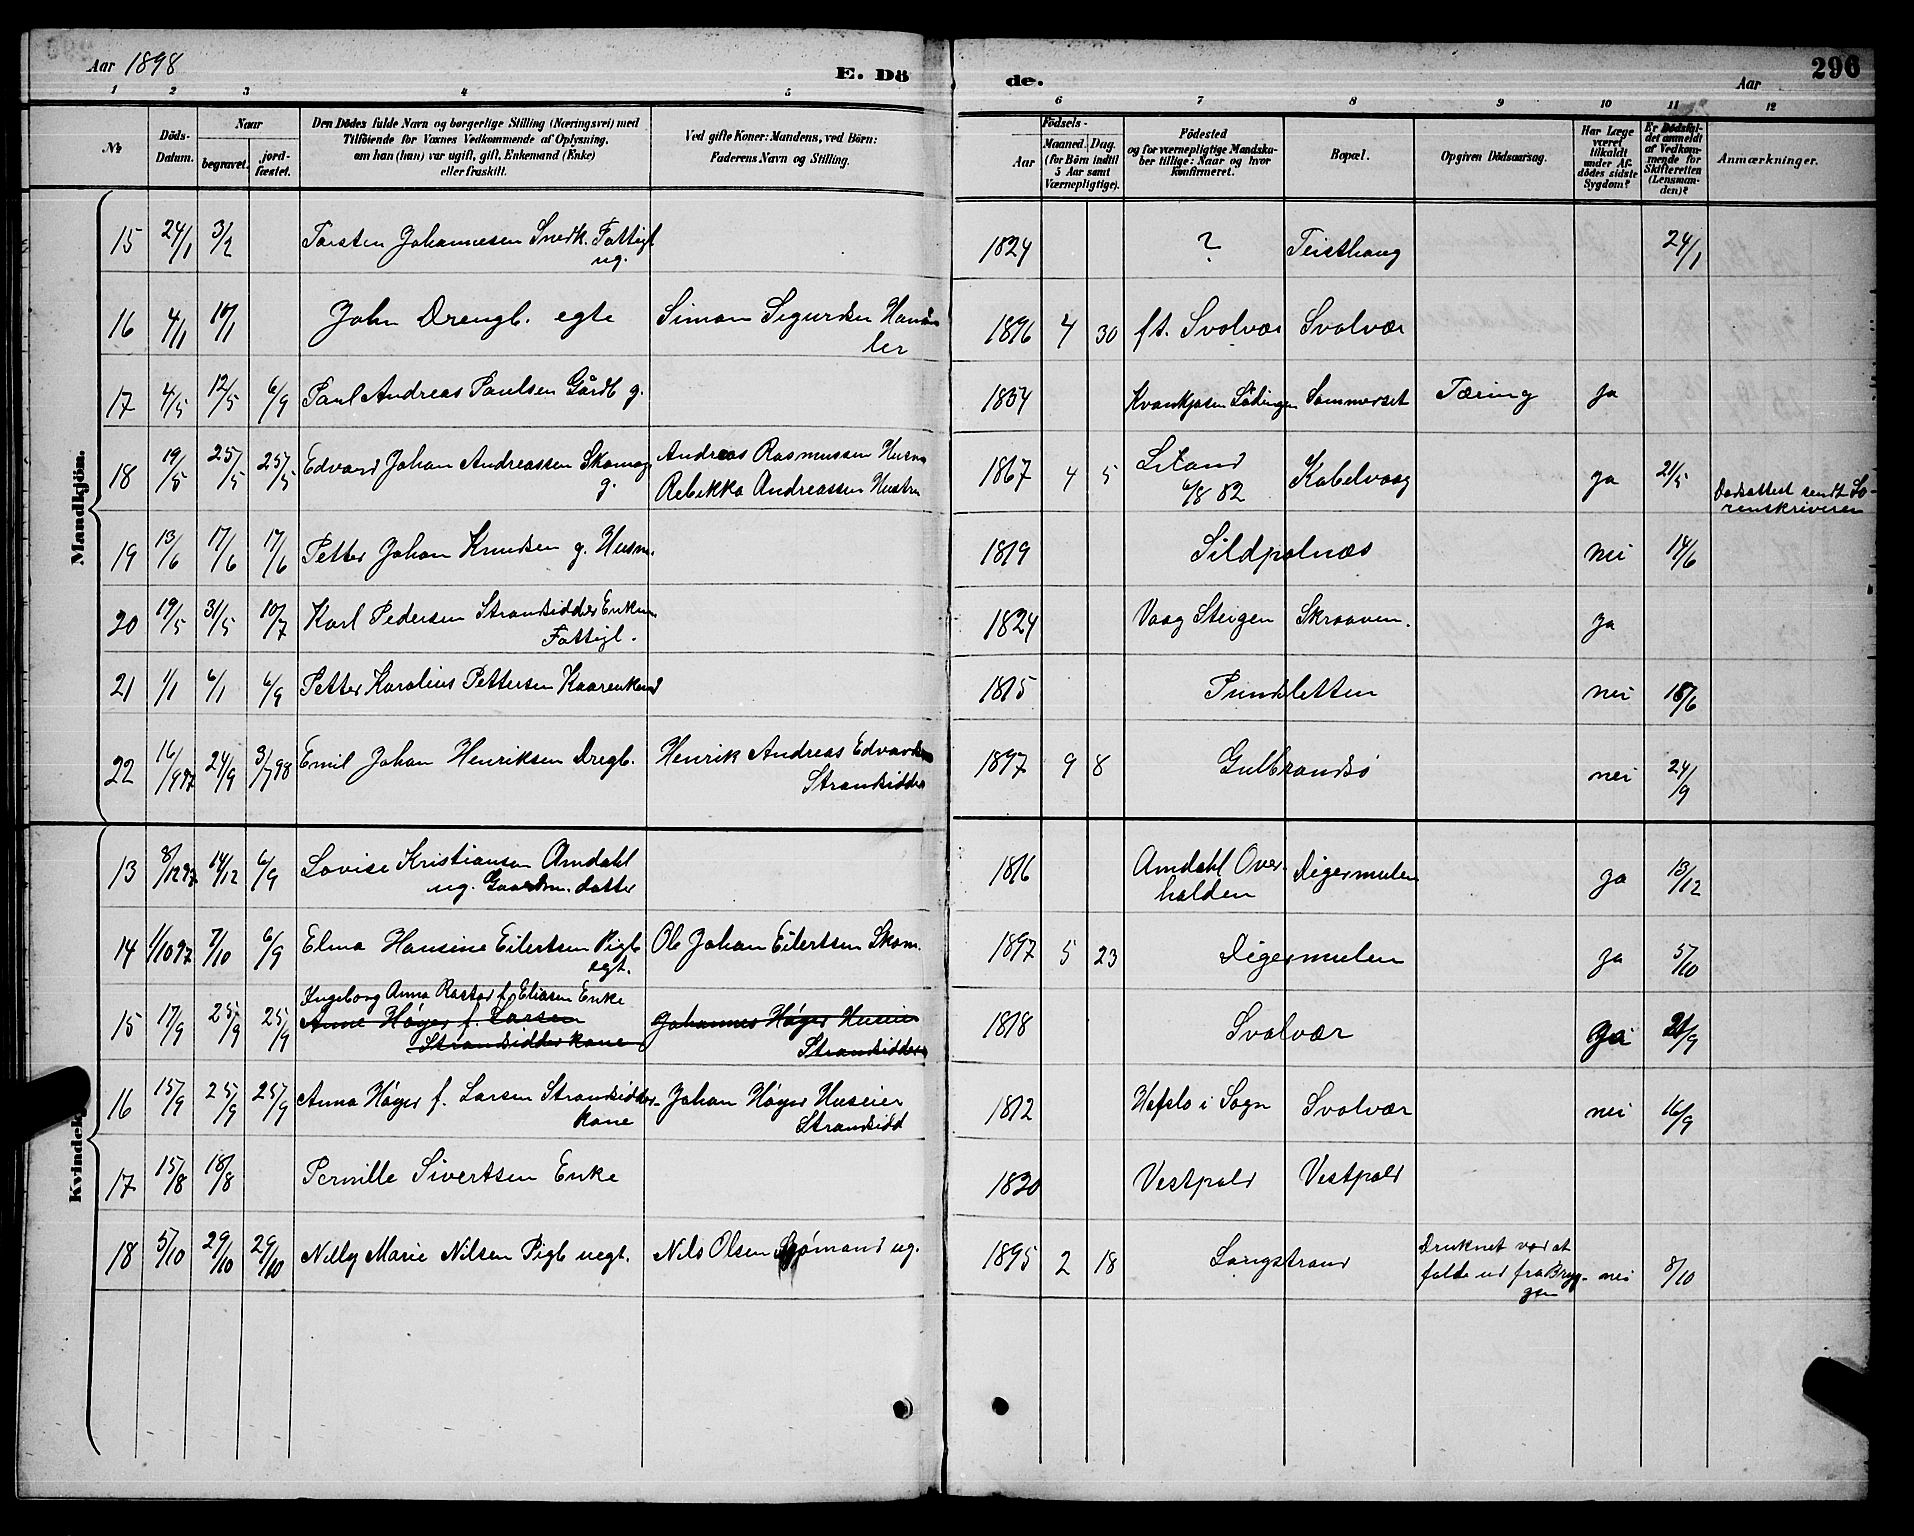 Aar 1898
E. Dö
de.
Aar
296
1 2 3 4 5 6 7 8 9 10 11 12
№
Döds-
Datum.
Naar
begravet.
jord-
fæstet.
Den Dödes fulde Navn og borgerlige Stilling (Næringsvei) med
Tilföiende for Voxnes Vedkommende af Oplysning,
om han (hun) var ugift, gift, Enkemand (Enke)
eller fraskilt.
Ved gifte Koner: Mandens, ved Börn:
Faderens Navn og Stilling.
Födsels-
Aar
Maaned. Dag.
(for Börn indtil
5 Aar samt
Værnepligtige).
Födested
og for værnepligtige Mandska-
ber tillige: Naar og hvor
konfirmeret.
Bopæl.
Opgiven Dödsaarsag.
Har Læge
været
tilkaldt
under Af-
dödes sidste
Sygdom?
Er Dödsfal-
det anmeldt
af Vedkom-
mende for
Skifteretten
(Lensman-
den)?
Anmærkninger.
Mandkjön.
15 24/1 3/2 Torsten Johannesen Snedk. Fattigl 1824 ? Teisthaug 24/1
ug.
16 4/1 10/1 John Drengb. egte Simon Sigurdsen Hand 1896 4 30 ft. Svolvær Svolvær
ler
17 4/5 12/5 6/9 Paul Andreas Paulsen Gårdb g. 1834 Kvankjosen Lødingen Sommerset Tæring ja
18 19/5 25/5 25/5 Edvard Johan Andreassen Skomag Andreas Rasmussen Husm 1867 4 5 Ja 21/5
g. Rebekka Andreassen Hustru 6/8 82 Kabelvaag Dødsattest sendt So-
renskriveren
19 13/6 17/6 17/6 Petter Johan Knudsen g. Husm. 1819 Sildpolnæs nei 14/6
20 19/5 31/5 10/7 Karl Pedersen Strandsidder Enkem 1824 Vaag Steigen Skraaven. Ja
Fattigl.
21 1/1 6/1 6/9 Petter Karolius Pettersen Kaarenkemd 1815 Pundsletten nei
22 16/9 97 24/9 3/7 98 Emil Johan Henriksen Dregb. Henrik Andreas Edvards 1897 9 8 Gulbrandsø nei 24/9
Strandsidder
Kvindek
13 8/12 97 14/12 6/9 Lovise Kristiansen Amdahl 1816 Amdahl Over- Digermulen Ja 13/12
ug. Gaardm. datter halden
14 1/10 97 7/10 6/9 Elma Hansine Eilertsen Pigb Ole Johan Eilertsen Skom. 1897 5 23 Digermulen Ja 5/10
egt.
Ingeborg Anna Rastad f. Eliasen Enke
15 17/9 25/9 25/9 Anne Høyer f. Larsen Johannes Høyer Huseier 1818 Svolvær Ja 21/9
Strandsidderkone Strandsidder
16 15/9 25/9 25/9 Anna Høyer f. Larsen Strandsidder- Johan Høyer Huseier 1812 Hafslo i Sogn Svolvær nei 16/9
kone Strandsidd
17 15/8 18/8 Pernille Sivertsen Enke 1820 Vestpold Vestpold
18 5/10 29/10 29/10 Nelly Marie Nilsen Pigb uegt. Nils Olsen Sjømand ug. 1895 2 18 Langstrand Druknet ved at
falde ud fra Bryg- nei 8/10
gen